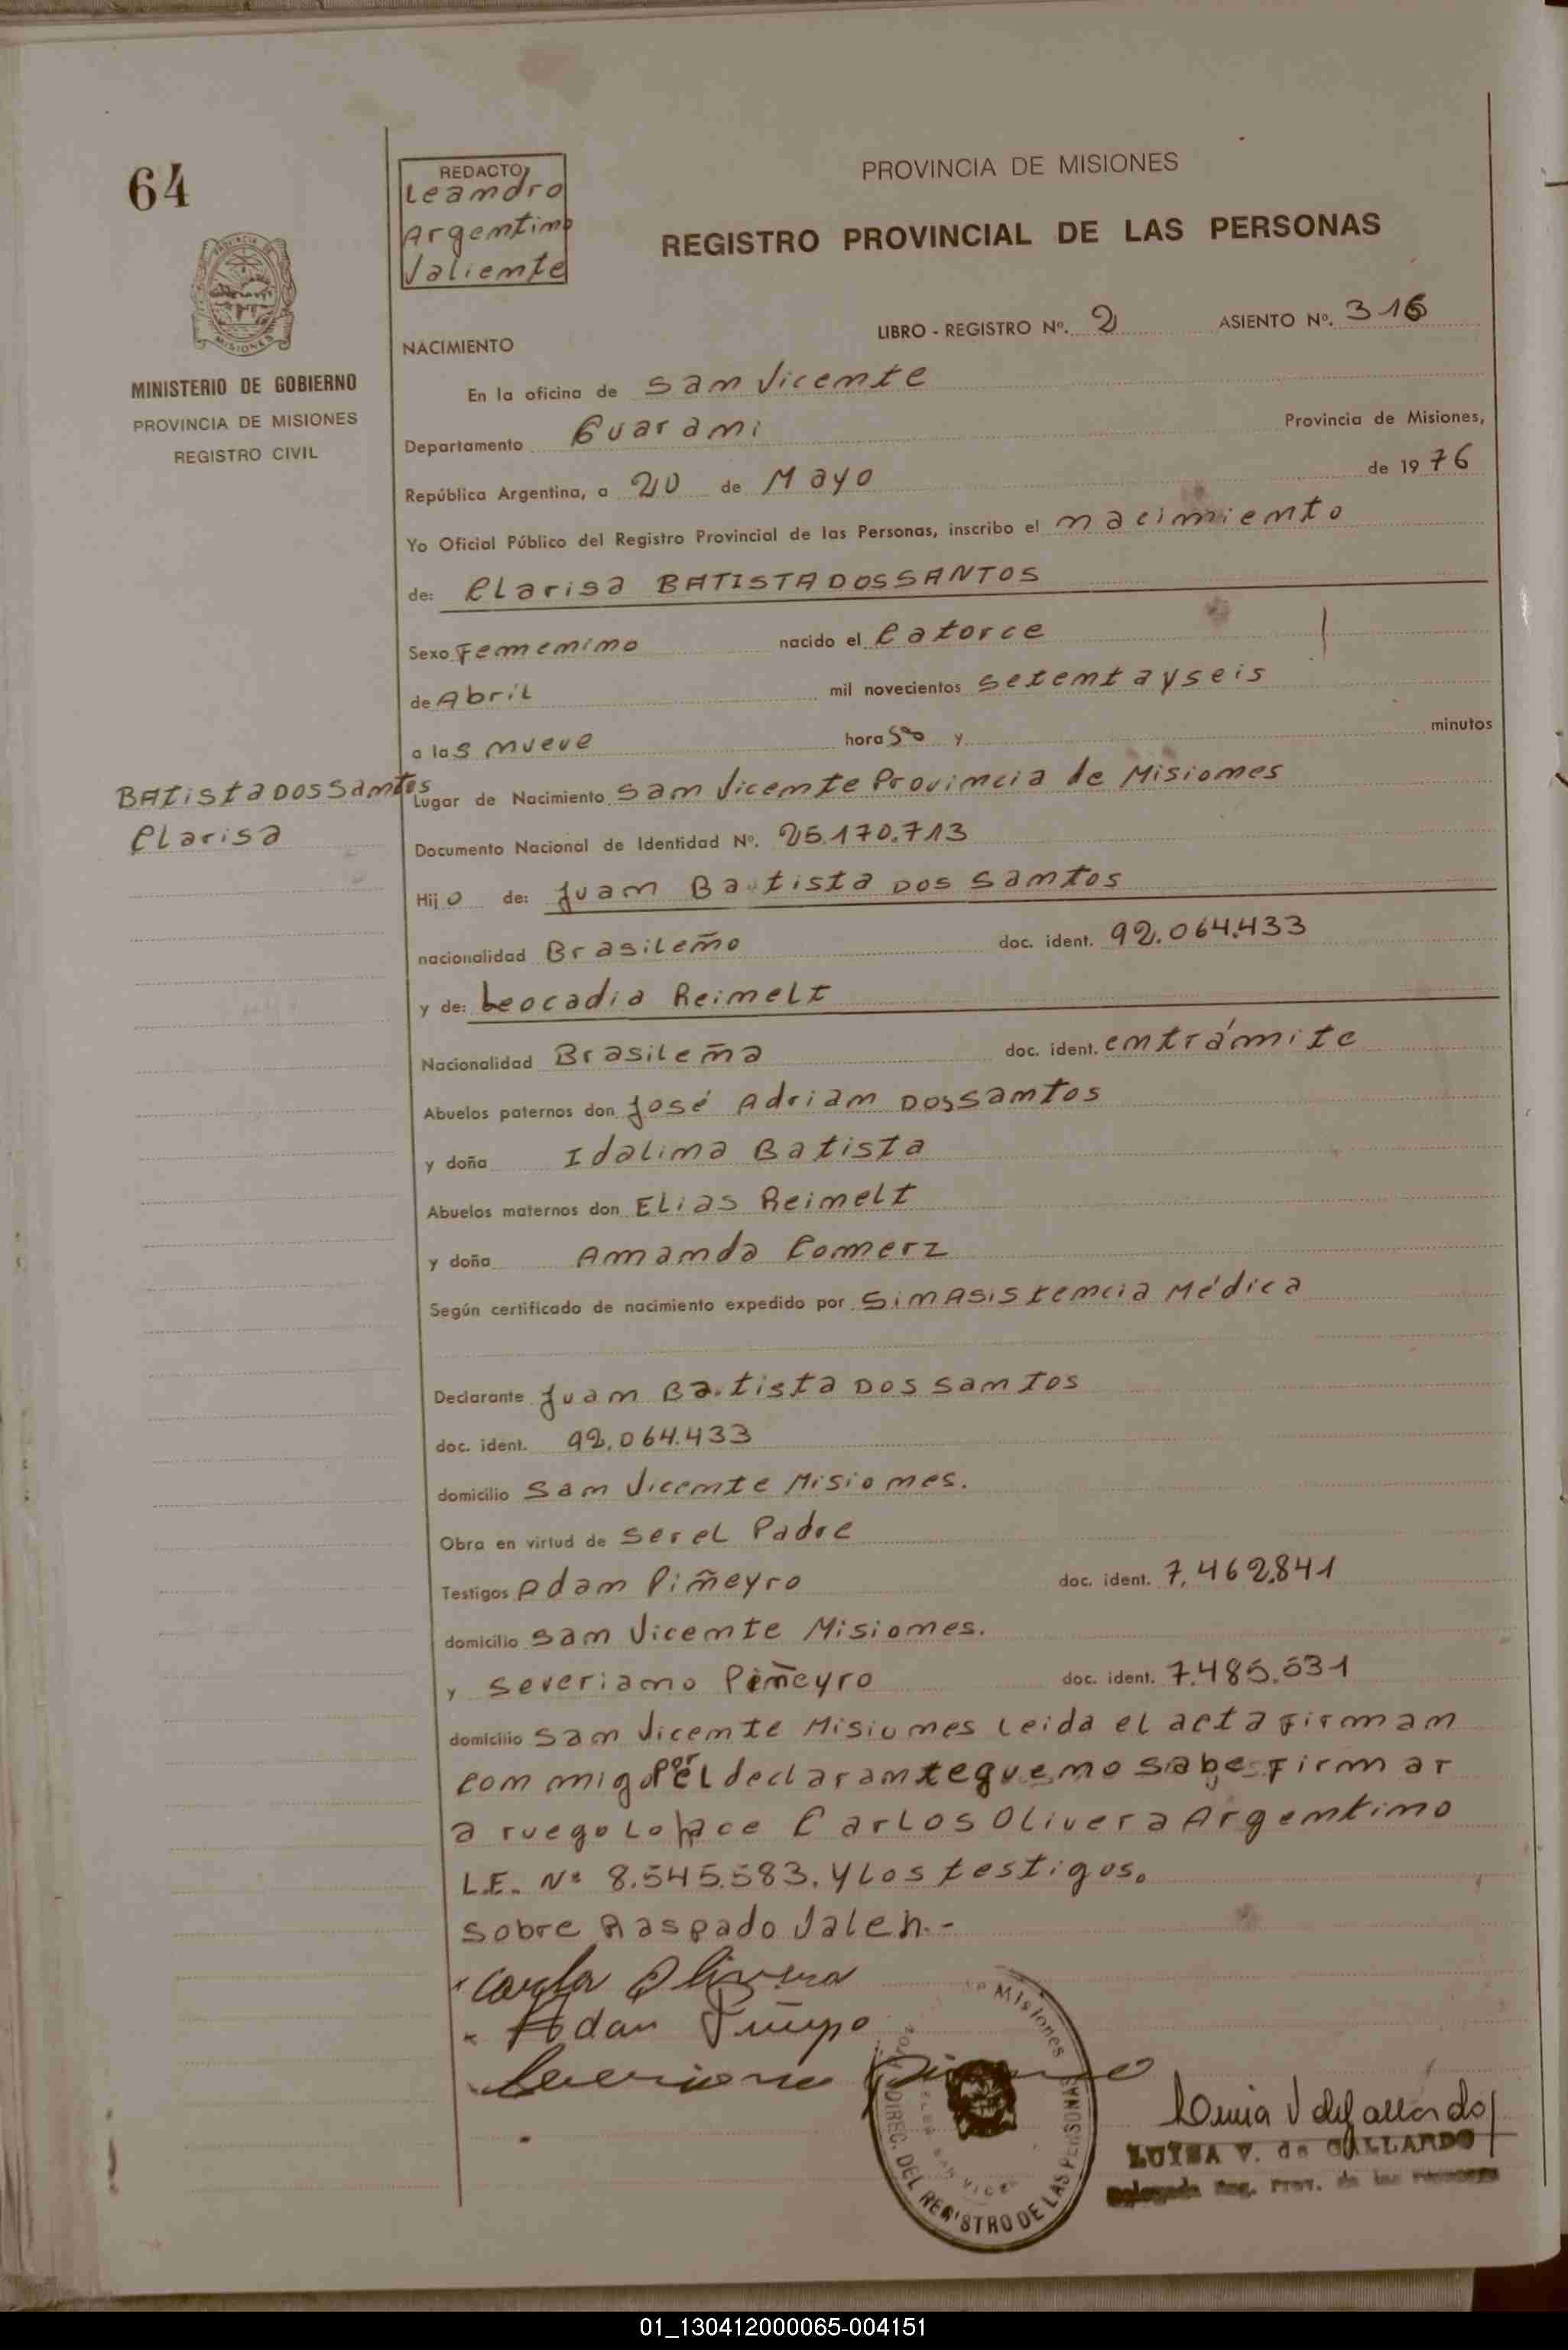 64
REDACTO
Leandro
Argentino
Valiente
PROVINCIA DE MISIONES
REGISTRO PROVINCIAL DE LAS PERSONAS
MISIONES
MINISTERIO DE GOBIERNO
PROVINCIA DE MISIONES
REGISTRO CIVIL
LIBRO - REGISTRO Nº. 2 ASIENTO Nº. 316
NACIMIENTO
En la oficina de San Vicente
Departamento Guarani Provincia de Misiones,
República Argentina, a 20 de Mayo de 1976
Yo Oficial Público del Registro Provincial de las Personas, inscribo el nacimiento
de: Clarisa BATISTA DOS SANTOS
Sexo Femenino nacido el Catorce
de Abril mil novecientos setenta y seis
a las nueve horas y minutos
BATISTA DOS Santos
Clarisa
Lugar de Nacimiento San Vicente Provincia de Misiones
Documento Nacional de Identidad Nº. 25.170.713
Hijo de: Juan Batista DOS Santos
nacionalidad Brasileño doc. ident. 92.064.433
y de: Leocadia Reimelt
Nacionalidad Brasileña doc. ident. en trámite
Abuelos paternos don José Adrian DOS Santos
y doña Idalina Batista
Abuelos maternos don Elias Reimelt
y doña Amanda Comerz
Según certificado de nacimiento expedido por Sin Asistencia Médica
Declarante Juan Batista DOS Santos
doc. ident. 92.064.433
domicilio San Vicente Misiones.
Obra en virtud de ser el Padre
Testigos Adan Piñeyro doc. ident. 7.462.841
domicilio San Vicente Misiones.
y Severiano Piñeyro doc. ident. 7.485.531
domicilio San Vicente Misiones Leida el acta firman
conmigo por el declarante que no sabe firmar
a ruego lo hace Carlos Olivera Argentino
L.E. Nº 8.545.583. y los testigos.
Sobre Raspado Valen.-
Carlos Olivera
Adan
Misiones
DIREC. DEL REGISTRO DE LAS PERSONAS
LUISA V. de GALLARDO
Delegada Reg. Prov. de las Personas
01_130412000065-004151